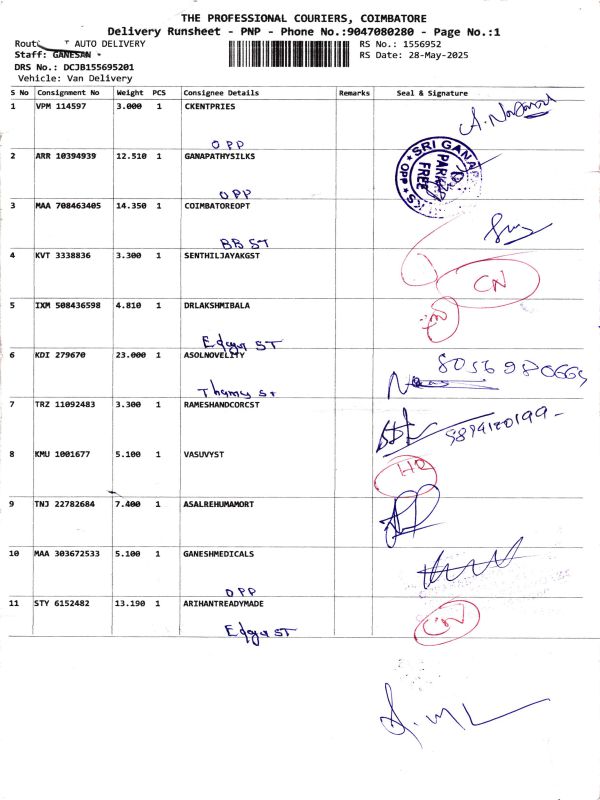 THE PROFESSIONAL COURIERS, COIMBATORE
Delivery Runsheet - PNP - Phone No.:9047080280 - Page No.:1
AUTO DELIVERY
RS No.: 1556952
Staff: GANESAN
RS Date: 28-May-2025
DRS No.: DCJB155695201
Vehicle: Van Delivery
S No Consignment No Weight PCS Consignee Details Remarks Seal & Signature
1 VPM 114597 3.000 1 CKENTPRIES
OPP
2 ARR 10394939 12.510 1 GANAPATHYSILKS
SRI GANA
PARK
FREE
OPP
OPP
3 MAA 708463405 14.350 1 COIMBATOREOPT
BB ST
4 KVT 3338836 3.300 1 SENTHILJAYAKGST
CN
5 IXM 508436598 4.810 1 DRLAKSHMIBALA
Edgar ST
6 KDI 279670 23.000 1 ASOLNOVELITY
8056980669
ST
7 TRZ 11092483 3.300 1 RAMESHANDCORCST
9894120199
8 KMU 1001677 5.100 1 VASUVYST
9 TNJ 22782684 7.400 1 ASALREHUMAMORT
10 MAA 303672533 5.100 1 GANESHMEDICALS
OPP
11 STY 6152482 13.190 1 ARIHANTREADYMADE
CN
Edgar ST